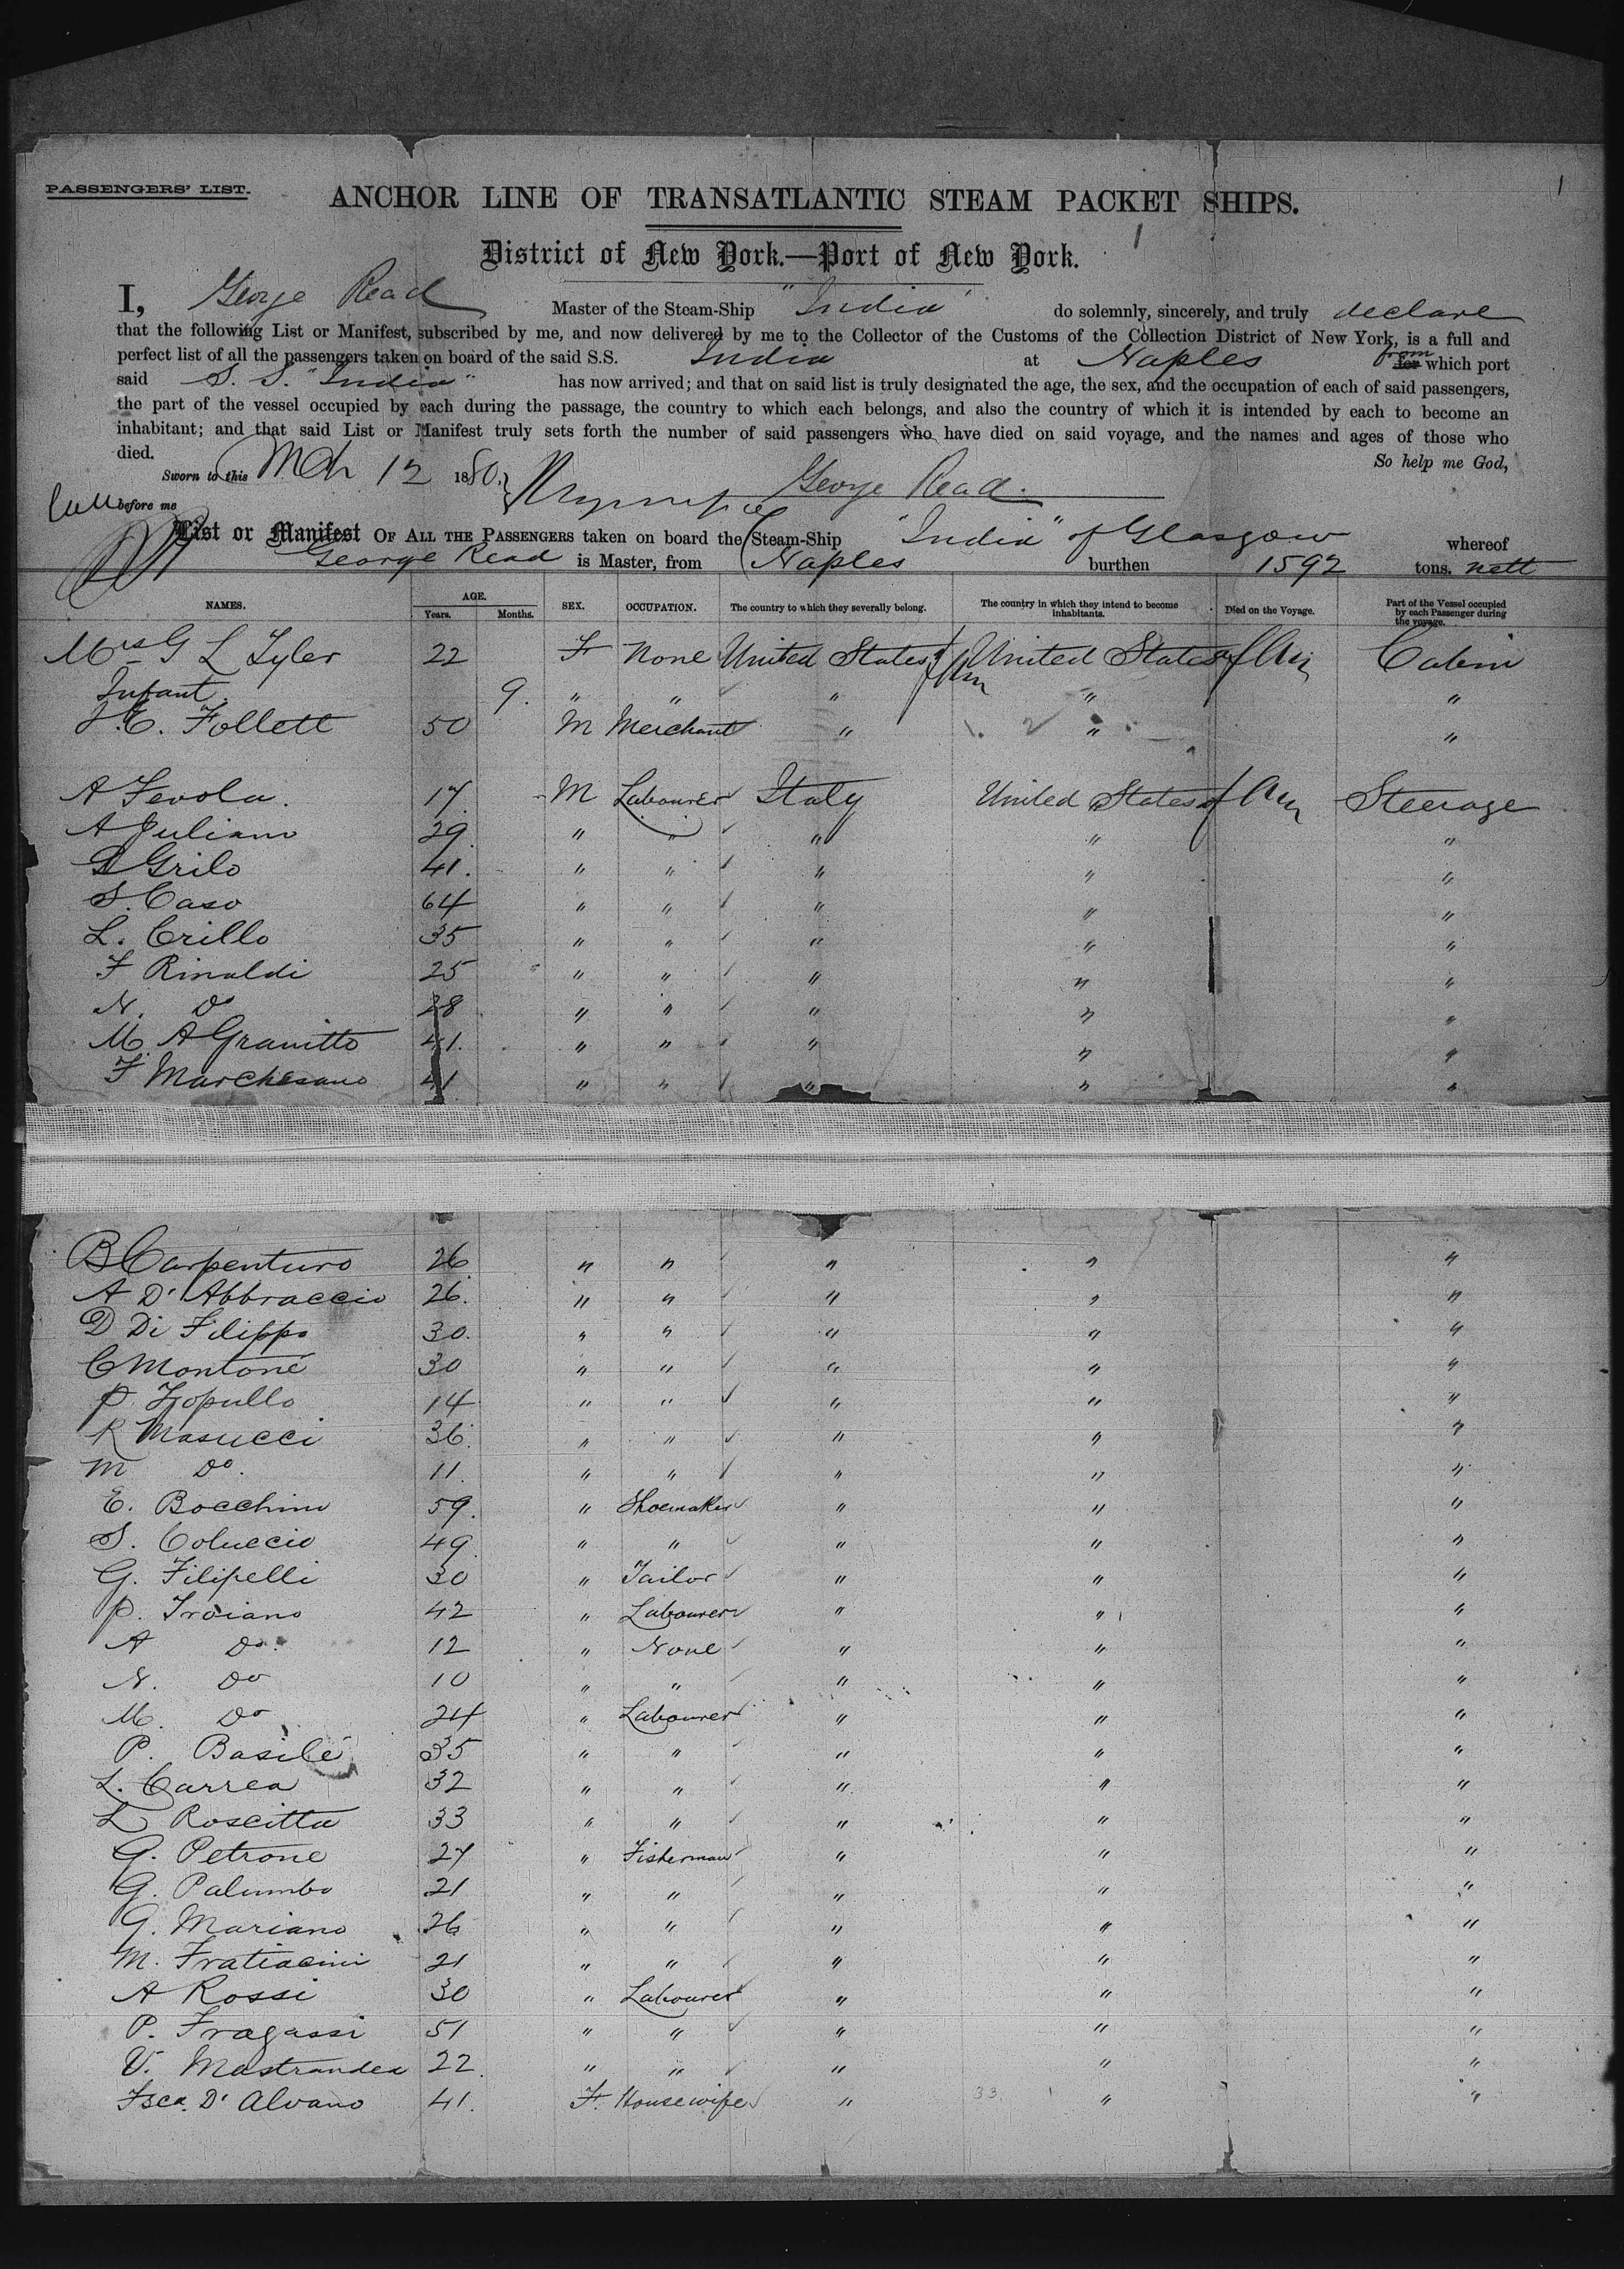 PASSENGERS' LIST.
1
ANCHOR LINE OF TRANSATLANTIC STEAM PACKET SHIPS.
1
District of New York.—Port of New York.
I, George Read Master of the Steam-Ship "India" do solemnly, sincerely, and truly declare
that the following List or Manifest, subscribed by me, and now delivered by me to the Collector of the Customs of the Collection District of New York, is a full and
perfect list of all the passengers taken on board of the said S.S. India at Naples from which port
said S.S. "India" has now arrived; and that on said list is truly designated the age, the sex, and the occupation of each of said passengers,
the part of the vessel occupied by each during the passage, the country to which each belongs, and also the country of which it is intended by each to become an
inhabitant; and that said List or Manifest truly sets forth the number of said passengers who have died on said voyage, and the names and ages of those who
died. So help me God,
Sworn to this Mch 12 1880. George Read.
before me
List or Manifest OF ALL THE PASSENGERS taken on board the Steam-Ship "India" of Glasgow whereof
George Read is Master, from Naples burthen 1592 tons. nett
NAMES. AGE. Years. Months. SEX. OCCUPATION. The country to which they severally belong. The country in which they intend to become inhabitants. Died on the Voyage. Part of the Vessel occupied by each Passenger during the voyage.
Mrs G L Tyler 22 F None United States of Am United States of Am Cabin
Infant 9. " " " " "
50 M Merchant " " "
A Fevola. 17. M Labourer Italy United States of Am Steerage
A Juliano 29. " " " " "
G Grilo 41. " " " " "
S. Caso 64 " " " " "
L. Crillo 35 " " " " "
F Rinaldi 25 " " " " "
N. Do 28 " " " " "
M. A Granitto 41. " " " " "
F Marchesano 41 " " " " "
B Carpenturo 26. " " " " "
A D'Abbraccio 26. " " " " "
D Di Filippo 30. " " " " "
C Montone 30 " " " " "
P. Zopullo 14 " " " " "
R Masucci 36. " " " " "
M Do. 11. " " " " "
E. Bocchino 59. " Shoemaker " " "
S. Coluccio 49. " " " " "
G. Filipelli 30 " Tailor " " "
P. Troiano 42 " Labourer " " "
A Do. 12 " None " " "
N. Do 10 " " " " "
M. Do 24 " Labourer " " "
P. Basile 35 " " " " "
L. Carrea 32 " " " " "
L Roscitta 33 " " " " "
G. Petrone 27 " Fisherman " " "
G. Palumbo 21 " " " " "
G. Mariano 26 " " " " "
M. Fratiacini 21 " " " " "
A Rossi 30 " Labourer " " "
P. Fragassi 51 " " " " "
V. Mastrandea 22. " " " " "
Fsca. D'Alvano 41. F. Housewife " 33 " "